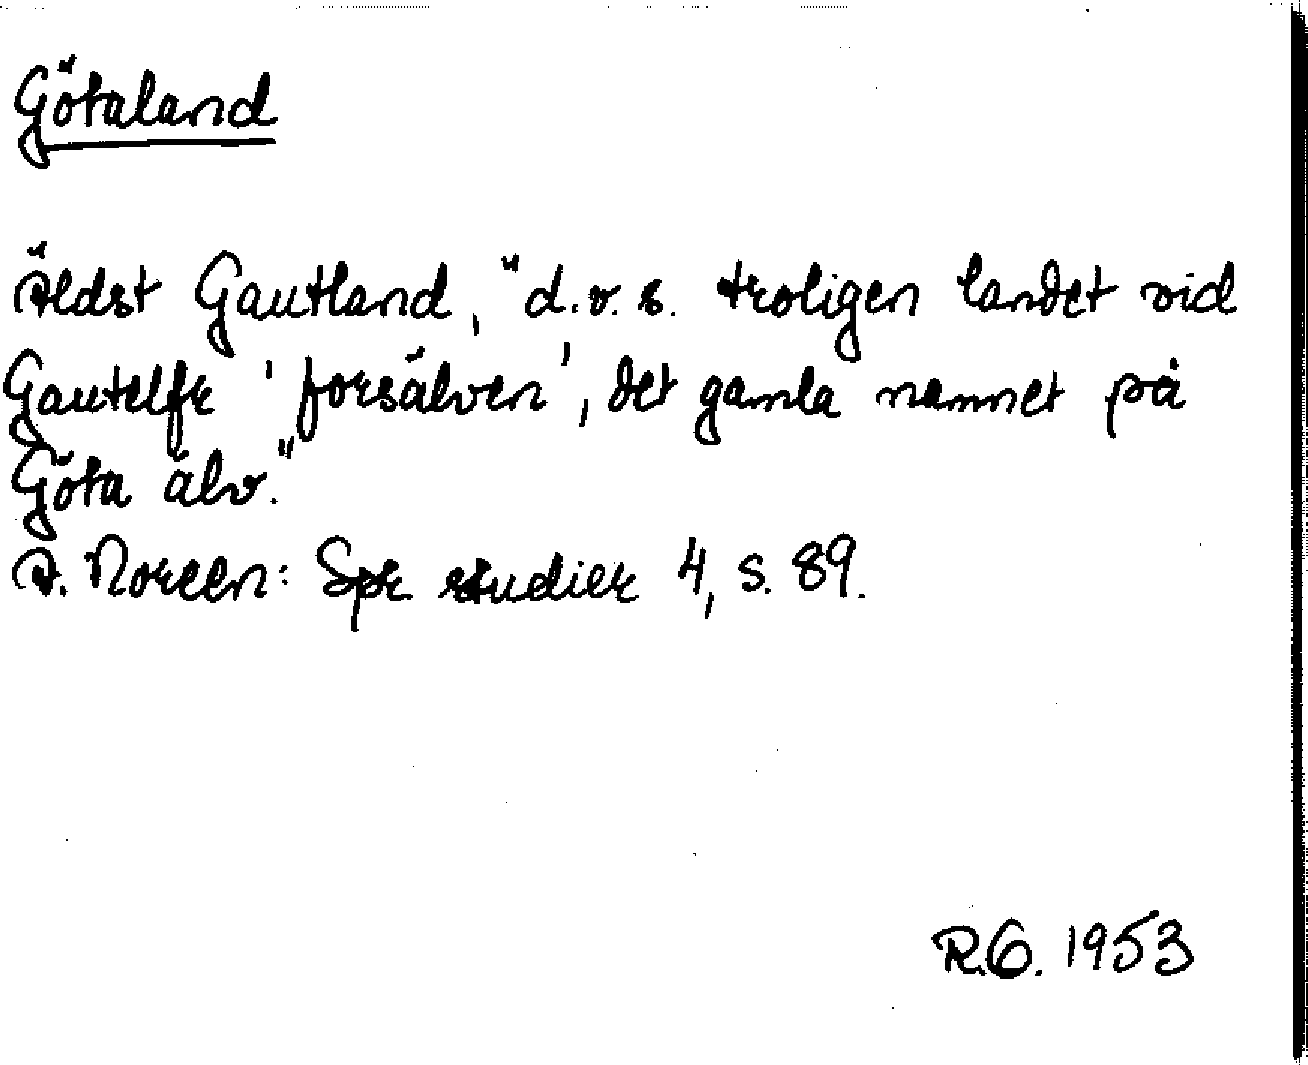 Götaland
Äldst Gautland, "d.v.s. troligen landet vid
Gautelfr 'forsälven', det gamla namnet på
Göta älv."
A. Noreen: Spr studier 4, s. 89.
R.G. 1953